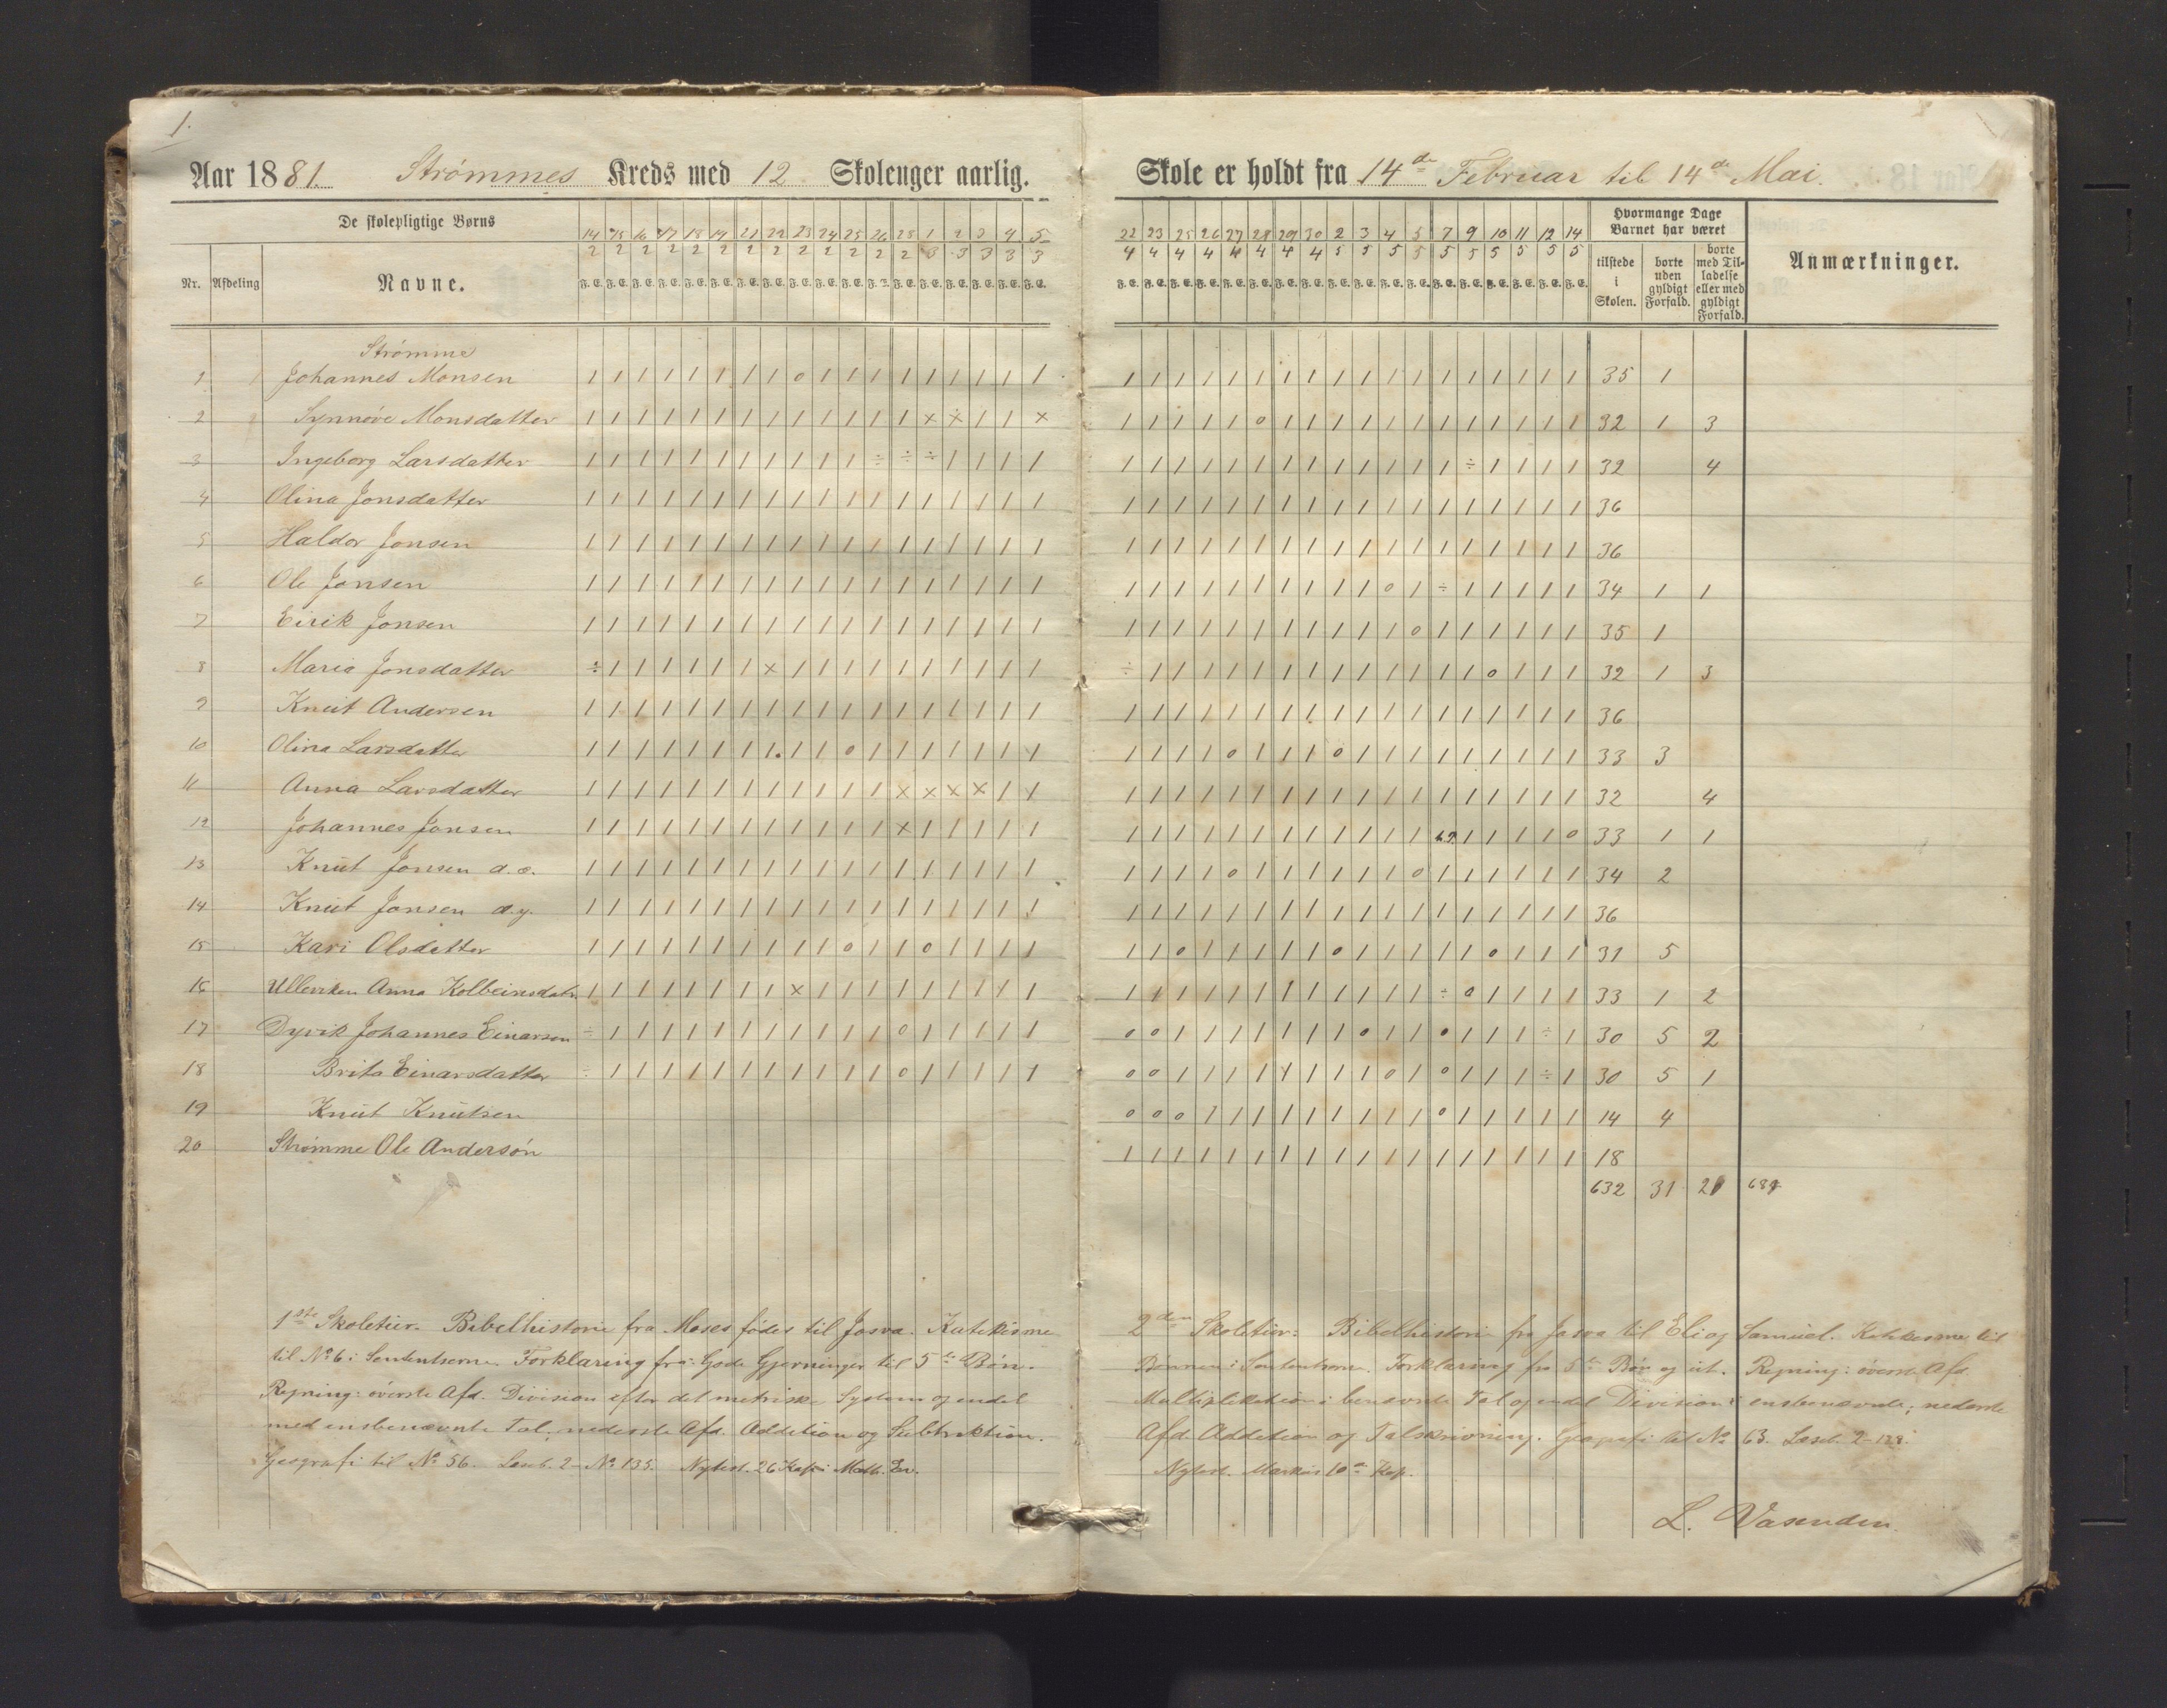 1.
Aar 1881. Strømmes Kreds med 12 Skoleuger aarlig.
De skolepligtige Børns
14 15 16 17 18 19 21 22 23 24 25 26 28 1 2 3 4 5
2 2 2 2 2 2 2 2 2 2 2 2 2 3 3 3 3 3
Nr. Afdeling Navne. F. E. F. E. F. E. F. E. F. E. F. E. F. E. F. E. F. E. F. E. F. E. F. E. F. E. F. E. F. E. F. E. F. E. F. E.
Strømme
1 Johannes Monsen 1 1 1 1 1 1 1 1 0 1 1 1 1 1 1 1 1 1
2 Synnøve Monsdatter 1 1 1 1 1 1 1 1 1 1 1 1 1 × × 1 1 ×
3 Ingeborg Larsdatter 1 1 1 1 1 1 1 1 1 1 1 ÷ ÷ ÷ 1 1 1 1
4 Olina Jonsdatter 1 1 1 1 1 1 1 1 1 1 1 1 1 1 1 1 1 1
5 Haldor Jonsen 1 1 1 1 1 1 1 1 1 1 1 1 1 1 1 1 1 1
6 Ole Jonsen 1 1 1 1 1 1 1 1 1 1 1 1 1 1 1 1 1 1
7 Eirik Jonsen 1 1 1 1 1 1 1 1 1 1 1 1 1 1 1 1 1 1
8 Maria Jonsdatter ÷ 1 1 1 1 1 1 × 1 1 1 1 1 1 1 1 1 1
9 Knut Andersen 1 1 1 1 1 1 1 1 1 1 1 1 1 1 1 1 1 1
10 Olina Larsdatter 1 1 1 1 1 1 1 1. 1 1 0 1 1 1 1 1 1 1
11 Anna Larsdatter 1 1 1 1 1 1 1 1 1 1 1 1 × × × × 1 1
12 Johannes Jonsen 1 1 1 1 1 1 1 1 1 1 1 1 × 1 1 1 1 1
13 Knut Jonsen d.æ. 1 1 1 1 1 1 1 1 1 1 1 1 1 1 1 1 1 1
14 Knut Jonsen d.y. 1 1 1 1 1 1 1 1 1 1 1 1 1 1 1 1 1 1
15 Kari Olsdatter 1 1 1 1 1 1 1 1 1 1 0 1 1 0 1 1 1 1
16 Anna Kolbeinsdatr 1 1 1 1 1 1 1 1 × 1 1 1 1 1 1 1 1 1
17 Dyvik Johannes Einarsen ÷ 1 1 1 1 1 1 1 1 1 1 1 0 1 1 1 1 1
18 Brita Einarsdatter ÷ 1 1 1 1 1 1 1 1 1 1 1 0 1 1 1 1 1
19 Knut Knutsen
20 Strømme Ole Andersøn
1ste Skoletur. Bibelhistorie fra Moses fødes til Josva. Katekisme
til No 6 i Sententserne. Forklaring fra: Gode Gjerninger til 5te Bøn.
Regning: øverste Afd. Division efter det metriske System og endel
med ensbenævnte Tal; nederste Afd. Addition og Subtraktion.
Geografi til No 56. Læseb. 2 – No 135. Nytest. 26 Kap. i Matt. Ev.
Skole er holdt fra 14de Februar til 14de Mai.
22 23 25 26 27 28 29 30 2 3 4 5 7 9 10 11 12 14
4 4 4 4 4 4 4 4 5 5 5 5 5 5 5 5 5 5
F. E. F. E. F. E. F. E. F. E. F. E. F. E. F. E. F. E. F. E. F. E. F. E. F. E. F. E. F. E. F. E. F. E. F. E.
Hvormange Dage
Barnet har været
tilstede
i
Skolen.
borte
uden
gyldigt
Forfald.
borte
med Til-
ladelse
eller med
gyldigt
Forfald.
Anmærkninger.
1 1 1 1 1 1 1 1 1 1 1 1 1 1 1 1 1 1 35 1
1 1 1 1 1 0 1 1 1 1 1 1 1 1 1 1 1 1 32 1 3
1 1 1 1 1 1 1 1 1 1 1 1 1 ÷ 1 1 1 1 32 4
1 1 1 1 1 1 1 1 1 1 1 1 1 1 1 1 1 1 36
1 1 1 1 1 1 1 1 1 1 1 1 1 1 1 1 1 1 36
1 1 1 1 1 1 1 1 1 1 0 1 ÷ 1 1 1 1 1 34 1 1
1 1 1 1 1 1 1 1 1 1 1 0 1 1 1 1 1 1 35 1
÷ 1 1 1 1 1 1 1 1 1 1 1 1 1 0 1 1 1 32 1 3
1 1 1 1 1 1 1 1 1 1 1 1 1 1 1 1 1 1 36
1 1 1 1 0 1 1 1 0 1 1 1 1 1 1 1 1 1 33 3
1 1 1 1 1 1 1 1 1 1 1 1 1 1 1 1 1 1 32 4
1 1 1 1 1 1 1 1 1 1 1 1 1 1 1 1 0 33 1 1
1 1 1 1 0 1 1 1 1 1 1 0 1 1 1 1 1 1 34 2
1 1 1 1 1 1 1 1 1 1 1 1 1 1 1 1 1 1 36
1 1 0 1 1 1 1 1 0 1 1 1 1 1 0 1 1 1 31 5
1 1 1 1 1 1 1 1 1 1 1 1 ÷ 0 1 1 1 1 33 1 2
0 0 1 1 1 1 1 1 1 0 1 1 0 1 1 1 ÷ 1 30 5 2
0 0 1 1 1 1 1 1 1 1 0 1 0 1 1 1 ÷ 1 30 5 1
0 0 0 1 1 1 1 1 1 1 1 1 0 1 1 1 1 1 14 4
1 1 1 1 1 1 1 1 1 1 1 1 1 1 1 1 1 1 18
632 31 21 684
2den Skoletur: Bibelhistorie fra Josva til Eli og Samuel. Katekisme til
Bønnen i Sententserne. Forklaring fra 5te Bøn og ut. Regning: øverste Afd.
Multiplikation i benævnte Tal og endel Division i ensbenævnte; nederste
Afd. Addition og Talskrivning. Geografi til No 63. Læseb. 2–138.
Nytest. Markus 10de Kap.
L. Vasenden.